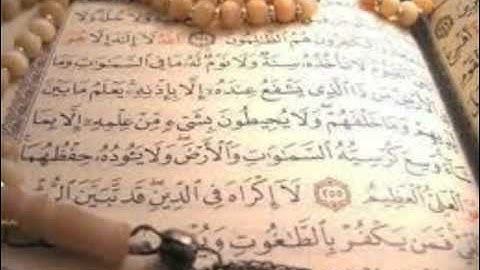 فِيهِ وَلَا خُلَّةٌ وَلَا
وَالْكَٰفِرُونَ هُمُ الظَّٰلِمُونَ ٢٥٤ اللَّهُ لَا إِلَٰهَ إِلَّا هُوَ
لَا تَأْخُذُهُ سِنَةٌ وَلَا نَوْمٌ لَّهُ مَا فِى السَّمَٰوَٰتِ وَمَا
الْأَرْضِ مَن ذَا الَّذِى يَشْفَعُ عِندَهُ إِلَّا بِإِذْنِهِ يَعْلَمُ مَا بَيْنَ
وَمَا خَلْفَهُمْ وَلَا يُحِيطُونَ بِشَىْءٍ مِّنْ عِلْمِهِ إِلَّا بِمَا
وَسِعَ كُرْسِيُّهُ السَّمَٰوَٰتِ وَالْأَرْضَ وَلَا يَـُٔودُهُ حِفْظُهُمَا
الْعَلِىُّ الْعَظِيمُ ٢٥٥ لَا إِكْرَاهَ فِى الدِّينِ قَد تَّبَيَّنَ
فَمَن يَكْفُرْ بِالطَّٰغُوتِ